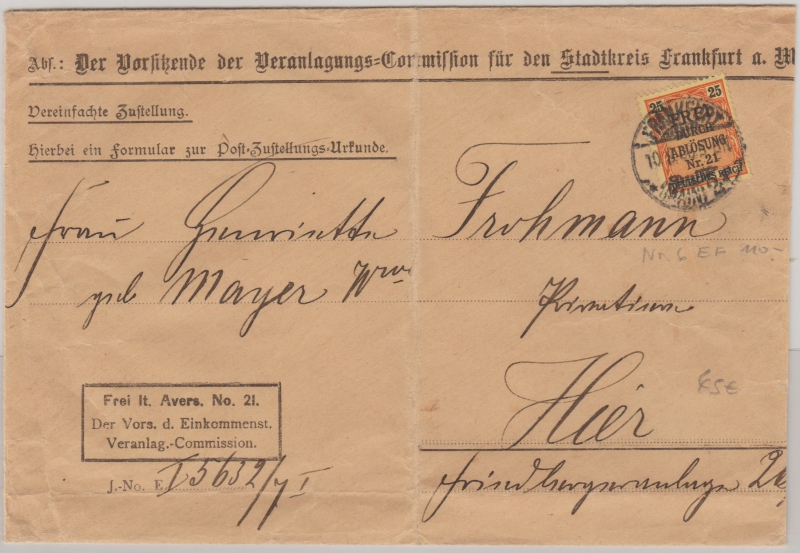 Abs.: Der Vorsitzende der Veranlagungs-Commission für den Stadtkreis Frankfurt a. M
Vereinfachte Zustellung.
Hierbei ein Formular zur Post-Zustellungs-Urkunde.
25 25
FREI
DURCH
ABLÖSUNG
Nr. 21
Frau Henriette Frohmann
geb Mayer Wwe
Privatiere
Nr. 6 EF 110.-
Hier
85€
Friedbergeranlage
Frei lt. Avers. No. 21.
Der Vors. d. Einkommenst.
Veranlag.-Commission.
J.-No. E. I 5632/7 I